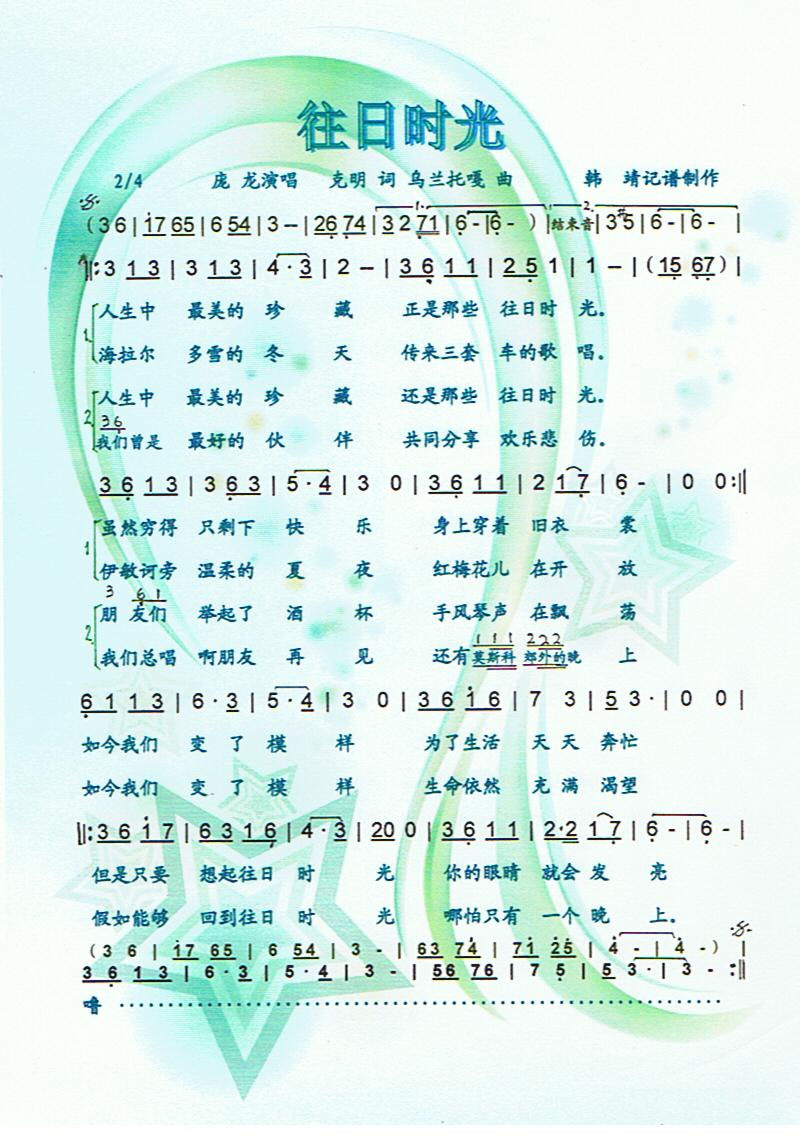 往日时光
2/4 庞 龙演唱 克明 词 乌兰托嘎 曲 韩 靖记谱制作
( 3 6 | 17 65 | 6 54 | 3 – | 26 74 | 3 2 71 | 6 - | 6 - ) | 结束音 | 3 #5 | 6 - | 6 - |
1.
2.
‖: 3 1 3 | 3 1 3 | 4 · 3 | 2 – | 3 6 1 1 | 2 5 1 | 1 – | ( 15 67 ) |
1. 人生中 最美的 珍 藏 正是那些 往日时 光。
海拉尔 多雪的 冬 天 传来三套 车的歌 唱。
2. 人生中 最美的 珍 藏 还是那些 往日时 光。
3 6
我们曾是 最好的 伙 伴 共同分享 欢乐悲 伤。
3 6 1 3 | 3 6 3 | 5 · 4 | 3 0 | 3 6 1 1 | 2 1 7 | 6 - | 0 0 :‖
1 虽然穷得 只剩下 快 乐 身上穿着 旧衣 裳
伊敏诃旁 温柔的 夏 夜 红梅花儿 在开 放
3 6 1
2. 朋 友们 举起了 酒 杯 手风琴声 在飘 荡
1 1 1 2 2 2
我们总唱 啊朋友 再 见 还有莫斯科 郊外的晚 上
6 1 1 3 | 6 · 3 | 5 · 4 | 3 0 | 3 6 1 6 | 7 3 | 5 3 · | 0 0 |
如今我们 变 了 模 样 为了生活 天 天 奔忙
如今我们 变 了 模 样 生命依然 充 满 渴望
‖: 3 6 1 7 | 6 3 1 6 | 4 · 3 | 20 0 | 3 6 1 1 | 2·2 1 7 | 6 - | 6 - |
但是只要 想起往日 时 光 你的眼睛 就会 发 亮
假如能够 回到往日 时 光 哪怕只有 一个 晚 上。
( 3 6 | 17 65 | 6 54 | 3 - | 63 74 | 71 25 | 4 - | 4 - ) |
3 6 1 3 | 6 · 3 | 5 · 4 | 3 - | 56 76 | 7 5 | 5 3 · | 3 - :‖
噜 ……………………………………………